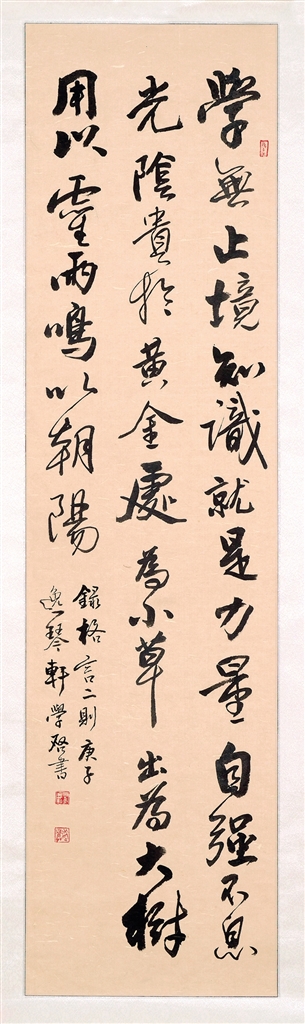 學無止境知識就是力量自強不息
光陰貴於黃金處為小草出為大樹
用以霍雨鳴以朝陽
錄格言二則庚子
逸琴軒學啓書